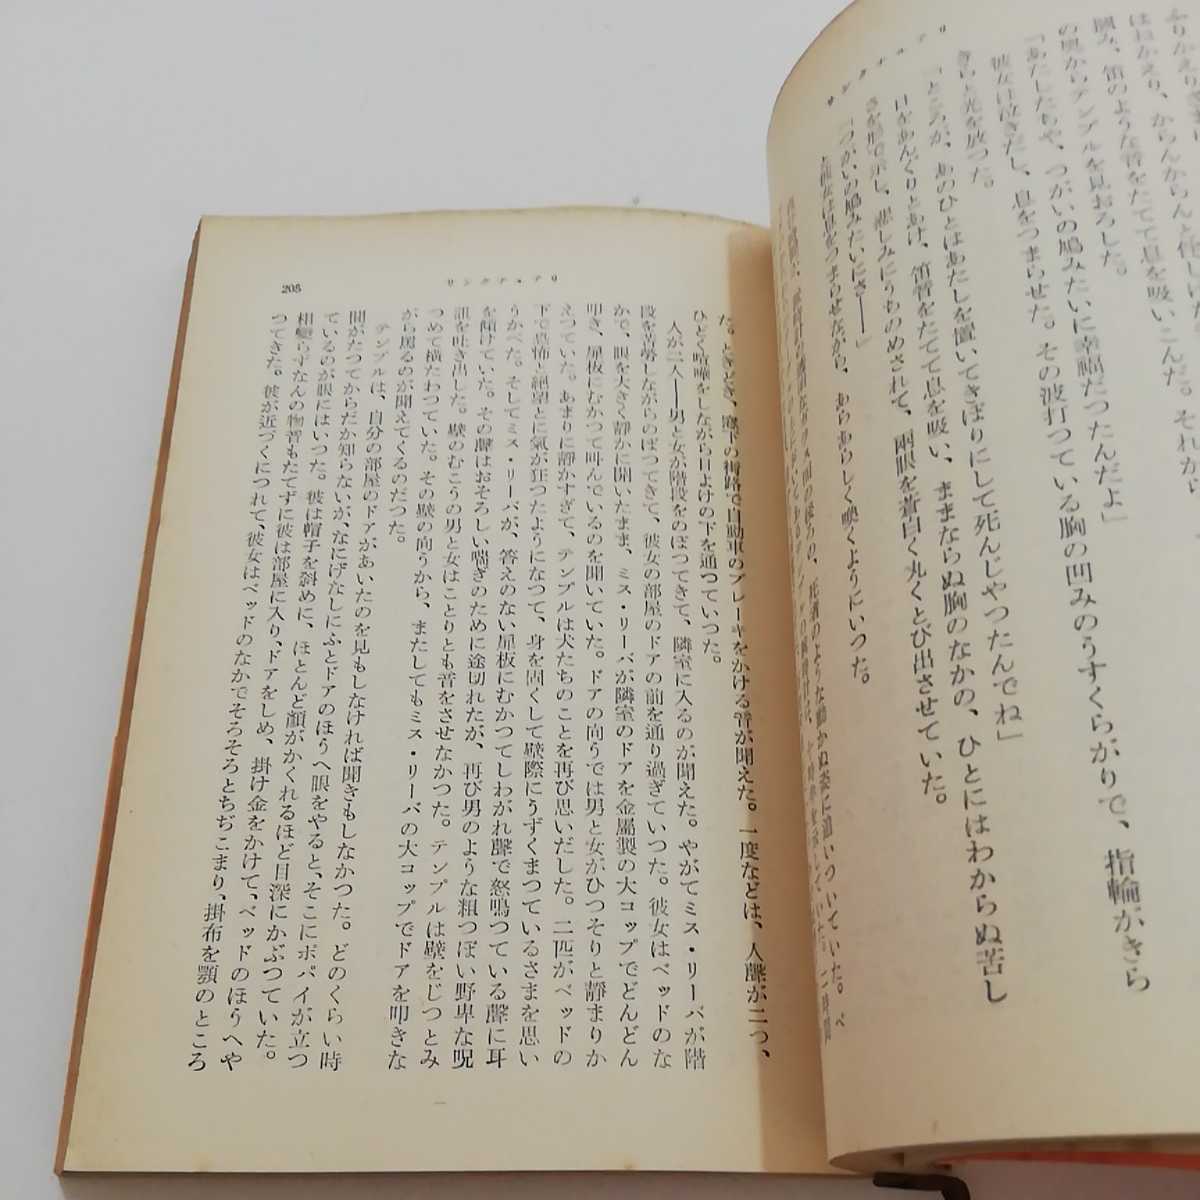 サンクチュアリ
ふりかえり
はおかえり、からんからんと
凹み、笛のような音をたてて息を吸いこんだ。それから
の奥からテンプルを見おろした。
「あたしたちや、つがいの鳩みたいに幸福だつたんだよ」
彼女は泣きだし、息をつまらせた。その波打つている胸の凹みのうすくらがりで、指輪がきら
きらと光を放つた。
「ところが、あのひとはあたしを置いてきぼりにして死んじやつたんでね」
口をあんぐりとあけ、笛音をたてて息を吸い、ままならぬ胸のなかの、ひとにはわからぬ苦し
さを形で示し、悲しみにうちのめされて、両眼を蒼白く丸くとび出させていた。
「つがいの鳩みたいにさ――」
と彼女は息をつまらせながら、あらあらしく喚くようにいつた。
サンクチュアリ
205
た。ときどき、窓下の街路で自動車のブレーキをかける音が聞えた。一度などは、人聲が二つ、
ひどく喧嘩をしながら日よけの下を通つていつた。
人が二人――男と女が階段をのぼつてきて、隣室に入るのが聞えた。やがてミス・リーバが階
段を苦勞しながらのぼつてきて、彼女の部屋のドアの前を通り過ぎていつた。彼女はベッドのな
かで、眼を大きく靜かに開いたまま、ミス・リーバが隣室のドアを金屬製の大コップでどんどん
叩き、扉板にむかつて叫んでいるのを聞いていた。ドアの向うでは男と女がひつそりと靜まりか
えつていた。あまりに靜かすぎて、テンプルは犬たちのことを再び思いだした。二匹がベッドの
下で恐怖と絕望とに氣が狂つたようになつて、身を固くして壁際にうずくまつているさまを思い
うかべた。そしてミス・リーバが、答えのない扉板にむかつてしわがれ聲で怒鳴つている聲に耳
を傾けていた。その聲はおそろしい喘ぎのために途切れたが、再び男のような粗つぽい野卑な呪
詛を吐き出した。壁のむこうの男と女はことりとも音をさせなかつた。テンプルは壁をじつとみ
つめて横たわつていた。その壁の向うから、またしてもミス・リーバの大コップでドアを叩きな
がら罵るのが聞えてくるのだつた。
テンプルは、自分の部屋のドアがあいたのを見もしなければ聞きもしなかつた。どのくらい時
間がたつてからだか知らないが、なにげなしにふとドアのほうへ眼をやると、そこにポパイが立つ
ているのが眼にはいつた。彼は帽子を斜めに、ほとんど顏がかくれるほど目深にかぶつていた。
相變らずなんの物音もたてずに彼は部屋に入り、ドアをしめ、掛け金をかけて、ベッドのほうへや
つてきた。彼が近づくにつれて、彼女はベッドのなかでそろそろとちぢこまり、掛布を顎のところ